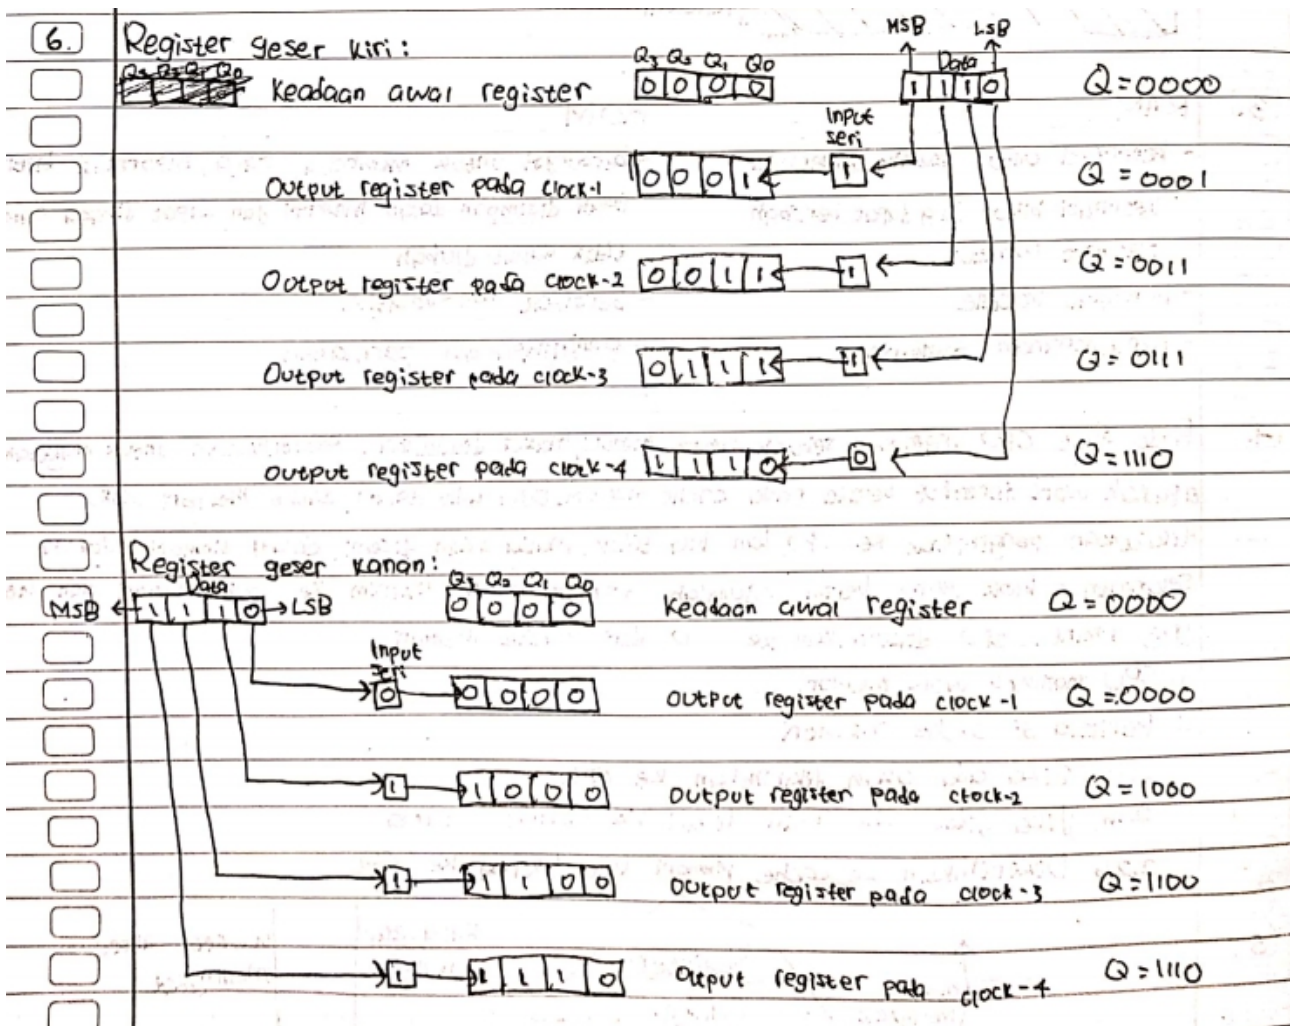 6. Register geser kiri :
MSB LSB
Q3 Q2 Q1 Q0 Data
Keadaan awal register 0 0 0 0 1 1 1 0 Q=0000
Input seri
Output register pada clock-1 0 0 0 1 1 Q=0001
Output register pada clock-2 0 0 1 1 1 Q=0011
Output register pada clock-3 0 1 1 1 1 Q=0111
Output register pada clock-4 1 1 1 0 0 Q=1110
Register geser kanan :
Data Q3 Q2 Q1 Q0
MSB 1 1 1 0 LSB 0 0 0 0 Keadaan awal register Q=0000
Input seri
0 0 0 0 0 Output register pada clock-1 Q=0000
1 1 0 0 0 Output register pada clock-2 Q=1000
1 1 1 0 0 Output register pada clock-3 Q=1100
1 1 1 1 0 Output register pada clock-4 Q=1110